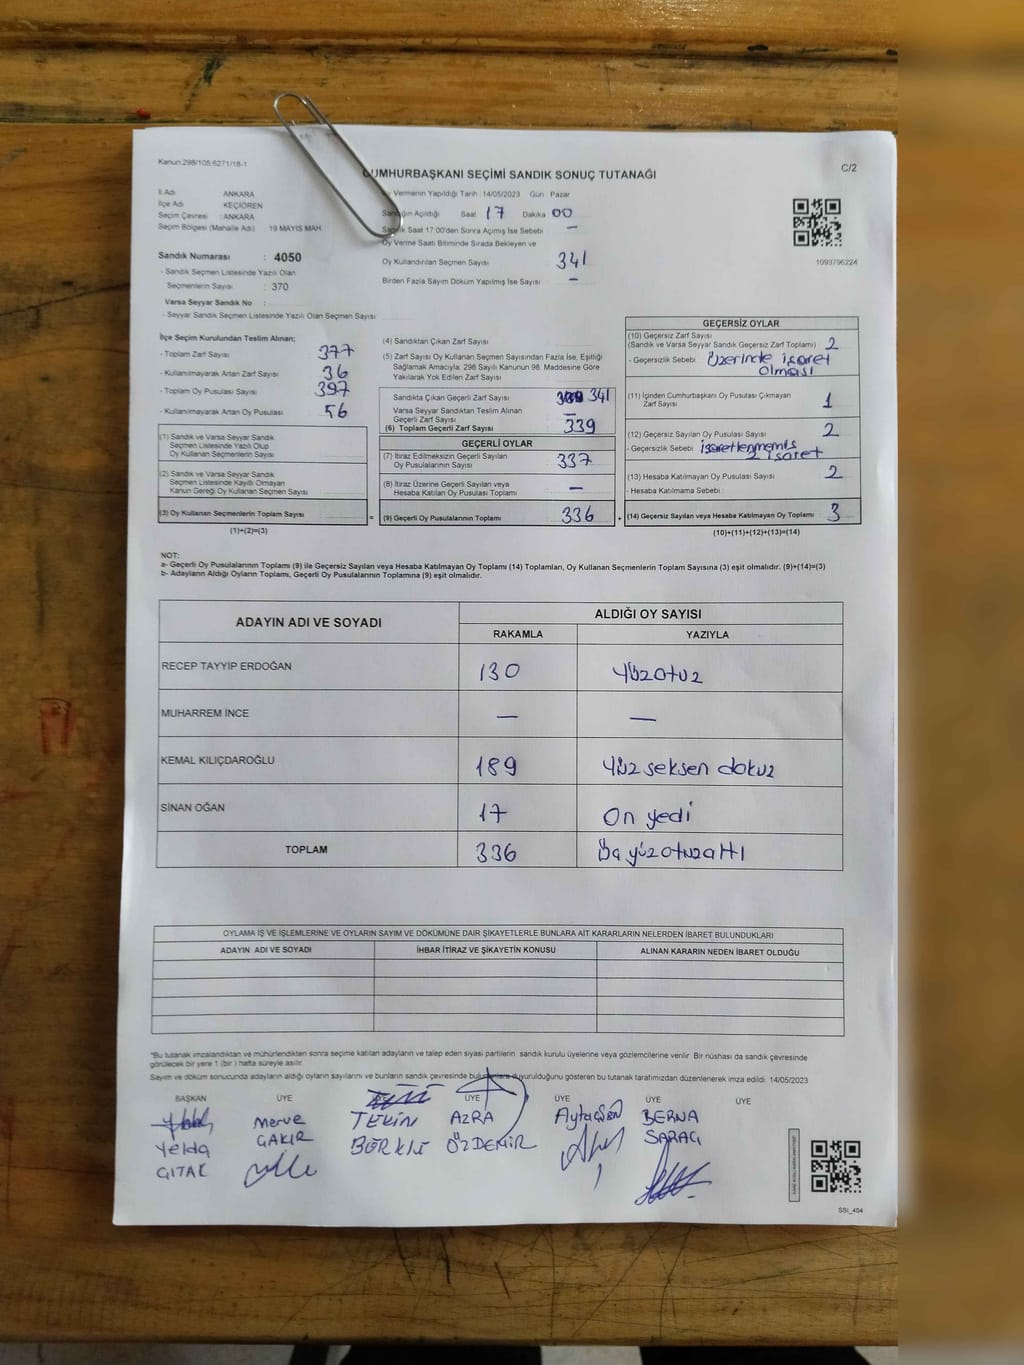 Kanun:298/105,6271/18-1
C/2
CUMHURBAŞKANI SEÇİMİ SANDIK SONUÇ TUTANAĞI
İl Adı : ANKARA
İlçe Adı : KEÇİÖREN
Seçim Çevresi : ANKARA
Seçim Bölgesi (Mahalle Adı) : 19 MAYIS MAH.
Sandık Numarası : 4050
- Sandık Seçmen Listesinde Yazılı Olan
Seçmenlerin Sayısı : 370
Varsa Seyyar Sandık No :
- Seyyar Sandık Seçmen Listesinde Yazılı Olan Seçmen Sayısı:
Oy Vermenin Yapıldığı Tarih :14/05/2023 Gün Pazar
Sandığın Açıldığı Saat 17 Dakika 00
Sandık Saat 17:00'den Sonra Açılmış İse Sebebi –
Oy Verme Saati Bitiminde Sırada Bekleyen ve
Oy Kullandırılan Seçmen Sayısı 341
Birden Fazla Sayım Döküm Yapılmış İse Sayısı –
1093796224
İlçe Seçim Kurulundan Teslim Alınan;
- Toplam Zarf Sayısı 377
- Kullanılmayarak Artan Zarf Sayısı 36
- Toplam Oy Pusulası Sayısı 397
- Kullanılmayarak Artan Oy Pusulası 56
(1) Sandık ve Varsa Seyyar Sandık
Seçmen Listesinde Yazılı Olup
Oy Kullanan Seçmenlerin Sayısı
(2) Sandık ve Varsa Seyyar Sandık
Seçmen Listesinde Kayıtlı Olmayan
Kanun Gereği Oy Kullanan Seçmen Sayısı
(3) Oy Kullanan Seçmenlerin Toplam Sayısı
(1)+(2)=(3)
(4) Sandıktan Çıkan Zarf Sayısı
(5) Zarf Sayısı Oy Kullanan Seçmen Sayısından Fazla İse, Eşitliği
Sağlamak Amacıyla; 298 Sayılı Kanunun 98. Maddesine Göre
Yakılarak Yok Edilen Zarf Sayısı
Sandıkta Çıkan Geçerli Zarf Sayısı 341
Varsa Seyyar Sandıktan Teslim Alınan
Geçerli Zarf Sayısı –
(6) Toplam Geçerli Zarf Sayısı 339
GEÇERLİ OYLAR
(7) İtiraz Edilmeksizin Geçerli Sayılan
Oy Pusulalarının Sayısı 337
(8) İtiraz Üzerine Geçerli Sayılan veya
Hesaba Katılan Oy Pusulası Toplamı –
= (9) Geçerli Oy Pusulalarının Toplamı 336 +
GEÇERSİZ OYLAR
(10) Geçersiz Zarf Sayısı
(Sandık ve Varsa Seyyar Sandık Geçersiz Zarf Toplamı) 2
- Geçersizlik Sebebi : Üzerinde işaret
olması
(11) İçinden Cumhurbaşkanı Oy Pusulası Çıkmayan
Zarf Sayısı 1
(12) Geçersiz Sayılan Oy Pusulası Sayısı 2
- Geçersizlik Sebebi işaretlenmemiş
2 işaret
(13) Hesaba Katılmayan Oy Pusulası Sayısı 2
- Hesaba Katılmama Sebebi :
(14) Geçersiz Sayılan veya Hesaba Katılmayan Oy Toplamı : 3
(10)+(11)+(12)+(13)=(14)
NOT:
a- Geçerli Oy Pusulalarının Toplamı (9) ile Geçersiz Sayılan veya Hesaba Katılmayan Oy Toplamı (14) Toplamları, Oy Kullanan Seçmenlerin Toplam Sayısına (3) eşit olmalıdır. (9)+(14)=(3)
b- Adayların Aldığı Oyların Toplamı, Geçerli Oy Pusulalarının Toplamına (9) eşit olmalıdır.
ADAYIN ADI VE SOYADI ALDIĞI OY SAYISI
RAKAMLA YAZIYLA
RECEP TAYYİP ERDOĞAN 130 Yüzotuz
MUHARREM İNCE – –
KEMAL KILIÇDAROĞLU 189 Yüz seksen dokuz
SİNAN OĞAN 17 On yedi
TOPLAM 336 Üçyüzotuzaltı
OYLAMA İŞ VE İŞLEMLERİNE VE OYLARIN SAYIM VE DÖKÜMÜNE DAİR ŞİKAYETLERLE BUNLARA AİT KARARLARIN NELERDEN İBARET BULUNDUKLARI
ADAYIN ADI VE SOYADI İHBAR İTİRAZ VE ŞİKAYETİN KONUSU ALINAN KARARIN NEDEN İBARET OLDUĞU
*Bu tutanak imzalandıktan ve mühürlendikten sonra seçime katılan adayların ve talep eden siyasi partilerin sandık kurulu üyelerine veya gözlemcilerine verilir. Bir nüshası da sandık çevresinde
görülecek bir yere 1 (bir) hafta süreyle asılır.
Sayım ve döküm sonucunda adayların aldığı oyların sayılarını ve bunların sandık çevresinde duyurulduğunu gösteren bu tutanak tarafımızdan düzenlenerek imza edildi. 14/05/2023
BAŞKAN ÜYE ÜYE ÜYE ÜYE ÜYE
Yelda Merve TEKİN AZRA Aytaç BERNA
ÇAKIR BERKLİ ÖZDEMİR SARAÇ
SSI_404